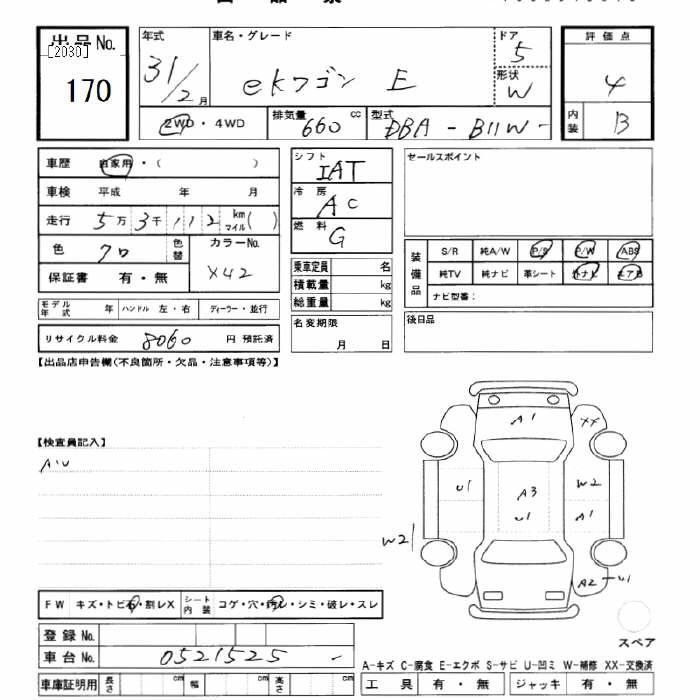 出品No.
[2030]
170
年式
31/2月
車名・グレード
ekワゴン E
ドア
5
形状
W
評価点
4
内装
B
2WD・4WD
排気量 660 cc
型式 DBA - B11W -
車歴 自家用・( )
車検 平成 年 月
走行 5万3千112 km マイル( )
色 クロ 色替
カラーNo.
X42
保証書 有・無
モデル年式 年 ハンドル 左・右 ディーラー・並行
リサイクル料金 8060 円 預託済
シフト
IAT
冷房
AC
燃料
G
乗車定員 名
積載量 kg
総重量 kg
名変期限
月 日
セールスポイント
装備品
S/R 純A/W P/S P/W ABS
純TV 純ナビ 革シート カナビ エアB
ナビ型番:
後日品
【出品店申告欄(不良箇所・欠品・注意事項等)】
【検査員記入】
AU
A1
XX
U1
A3
U1
W2
A1
W2
A2
U1
FW キズ・トビ石・割レX シート内装 コゲ・穴・汚レ・シミ・破レ・スレ
登録No.
車台No. 0521525 -
車庫証明用 長さ cm 幅 cm 高さ cm
スペア
A-キズ C-腐食 E-エクボ S-サビ U-凹ミ W-補修 XX-交換済
工具 有・無 ジャッキ 有・無